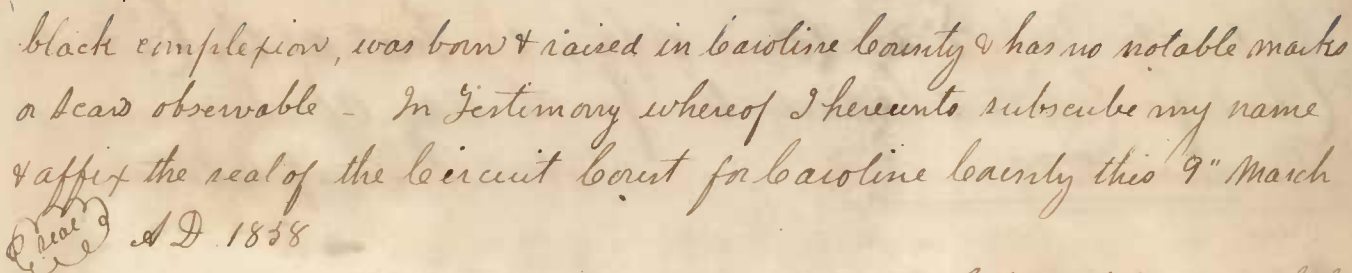 black complexion, was born & raised in Caroline County & has no notable marks
or scars observable - In Testimony whereof I hereunto subscribe my name
& affix the seal of the Circuit Court for Caroline County this 9" March
seal A D 1858